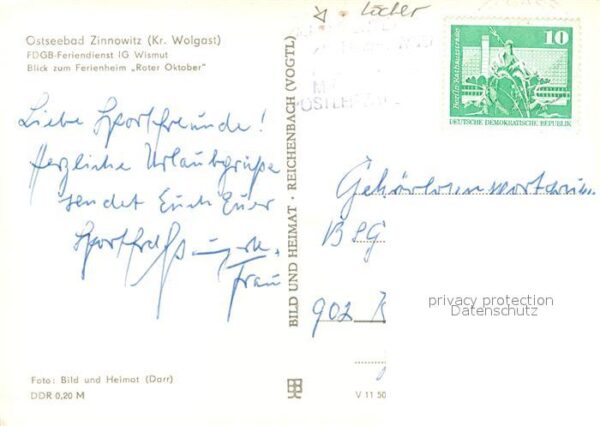 Löcher
Ostseebad Zinnowitz (Kr. Wolgast)
FDGB-Feriendienst IG Wismut
Blick zum Ferienheim „Roter Oktober"
Liebe Sportfreunde!
Herzliche Urlaubsgrüße
sendet Euch Euer
Sportfrd
Frau
Foto: Bild und Heimat (Darr)
DDR 0,20 M
BILD UND HEIMAT · REICHENBACH (VOGTL)
V 11 50
10
Berlin, Rathausstraße
DEUTSCHE DEMOKRATISCHE REPUBLIK
BSG
902
privacy protection
Datenschutz